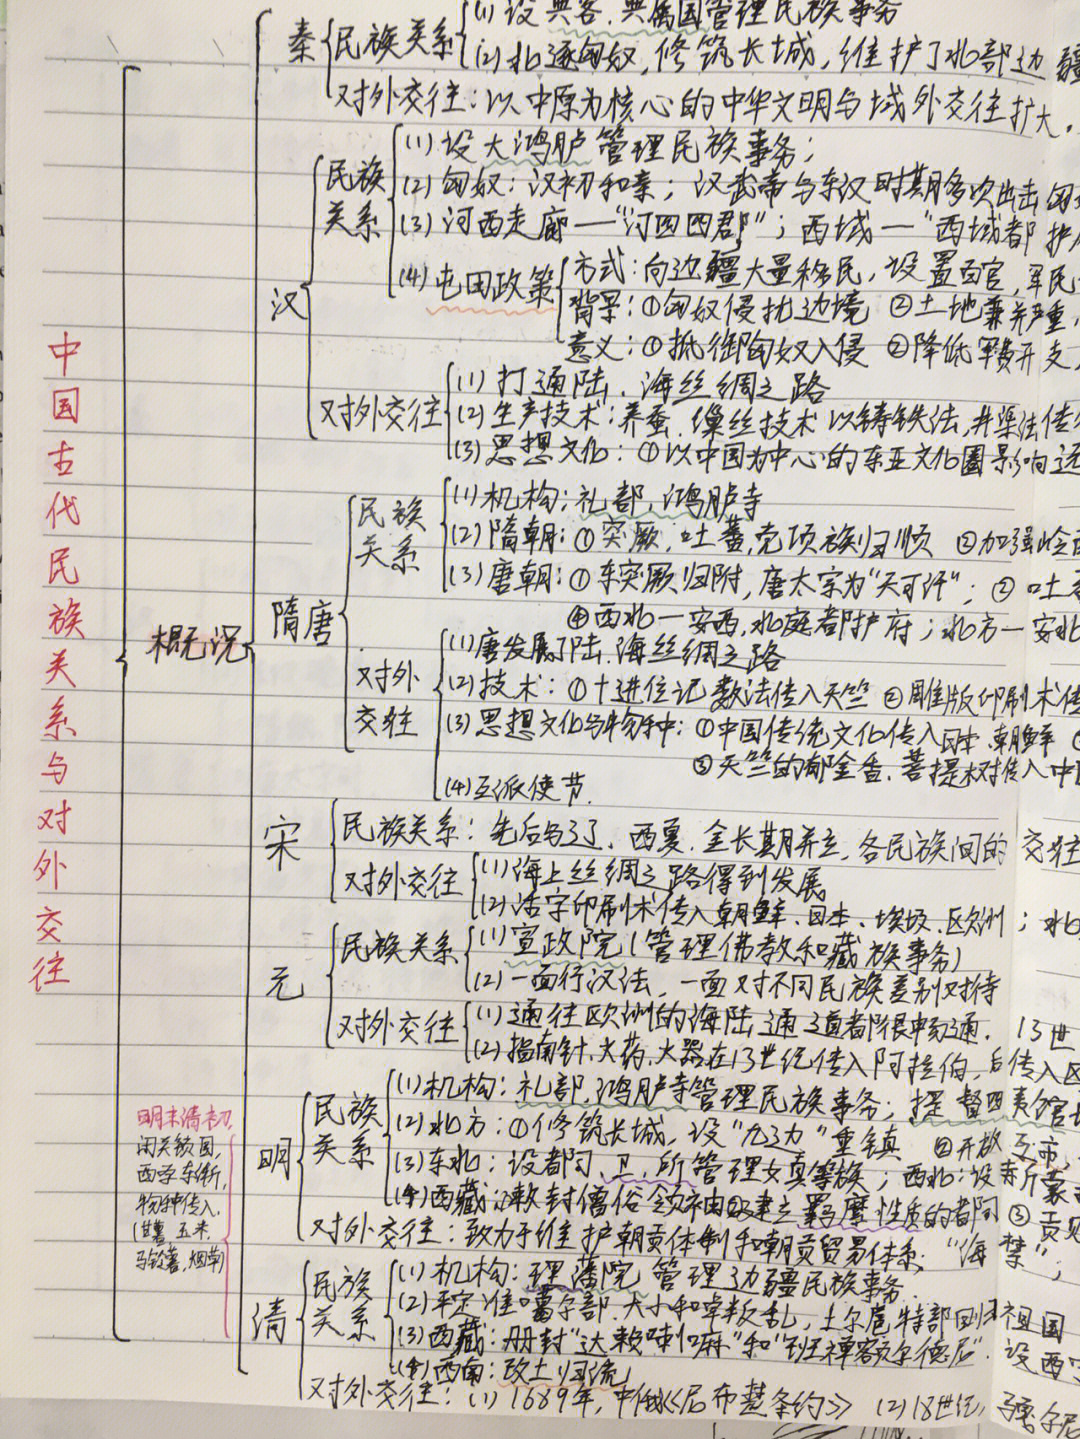 中国古代民族关系与对外交往
概况
秦
民族关系
(1) 设典客、典属国管理民族事务
(2) 北逐匈奴,修筑长城,维护了北部边疆
对外交往:以中原为核心的中华文明与域外交往扩大。
汉
民族关系
(1) 设大鸿胪管理民族事务;
(2) 匈奴:汉初和亲;汉武帝与东汉时期多次出击匈
(3) 河西走廊—"河西四郡";西域—"西域都护
(4) 屯田政策
方式:向边疆大量移民,设置田官,军民
背景:①匈奴侵扰边境 ②土地兼并严重,
意义:①抵御匈奴入侵 ②降低军费开支,
对外交往
(1) 打通陆、海丝绸之路
(2) 生产技术:养蚕、缫丝技术以铸铁法,井渠法传
(3) 思想文化:①以中国为中心的东亚文化圈影响远
隋唐
民族关系
(1) 机构:礼部,鸿胪寺
(2) 隋朝:①突厥,吐蕃,党项族归顺 ②加强
(3) 唐朝:①东突厥归附,唐太宗为"天可汗";②吐
④西北—安西,北庭都护府;北方—安北
对外交往
(1) 唐发展了陆、海丝绸之路
(2) 技术:①十进位记数法传入天竺 ②雕版印刷术传
(3) 思想文化与物种:①中国传统文化传入日本、朝鲜
③天竺的郁金香、菩提树传入中
(4) 互派使节.
宋
民族关系:先后与辽、西夏、金长期并立,各民族间的交往
对外交往
(1) 海上丝绸之路得到发展
(2) 活字印刷术传入朝鲜、日本、埃及、欧洲;
元
民族关系
(1) 宣政院(管理佛教和藏族事务)
(2) 一面行汉法,一面对不同民族差别对待
对外交往
(1) 通往欧洲的海陆通道都很畅通. 13世
(2) 指南针、火药、火器在13世纪传入阿拉伯,后传入区
明末清初,
闭关锁国,
西学东渐,
物种传入,
(甘薯 玉米
马铃薯,烟草)
明
民族关系
(1) 机构:礼部,鸿胪寺管理民族事务;提督四夷馆
(2) 北方:①修筑长城,设"九边"重镇 ②开放互市,
(3) 东北:设都司、卫、所管理女真等族;西北:设
(4) 西藏:①敕封僧俗领袖②建立羁縻性质的都司 ③
对外交往:致力于维护朝贡体制和朝贡贸易体系;"海禁";
清
民族关系
(1) 机构:理藩院管理边疆民族事务.
(2) 平定准噶尔部、大小和卓叛乱,土尔扈特部回归祖国
(3) 西藏:册封"达赖喇嘛"和"班禅额尔德尼".设
(4) 西南:改土归流
对外交往:(1) 1689年,中俄《尼布楚条约》 (2) 18世纪,